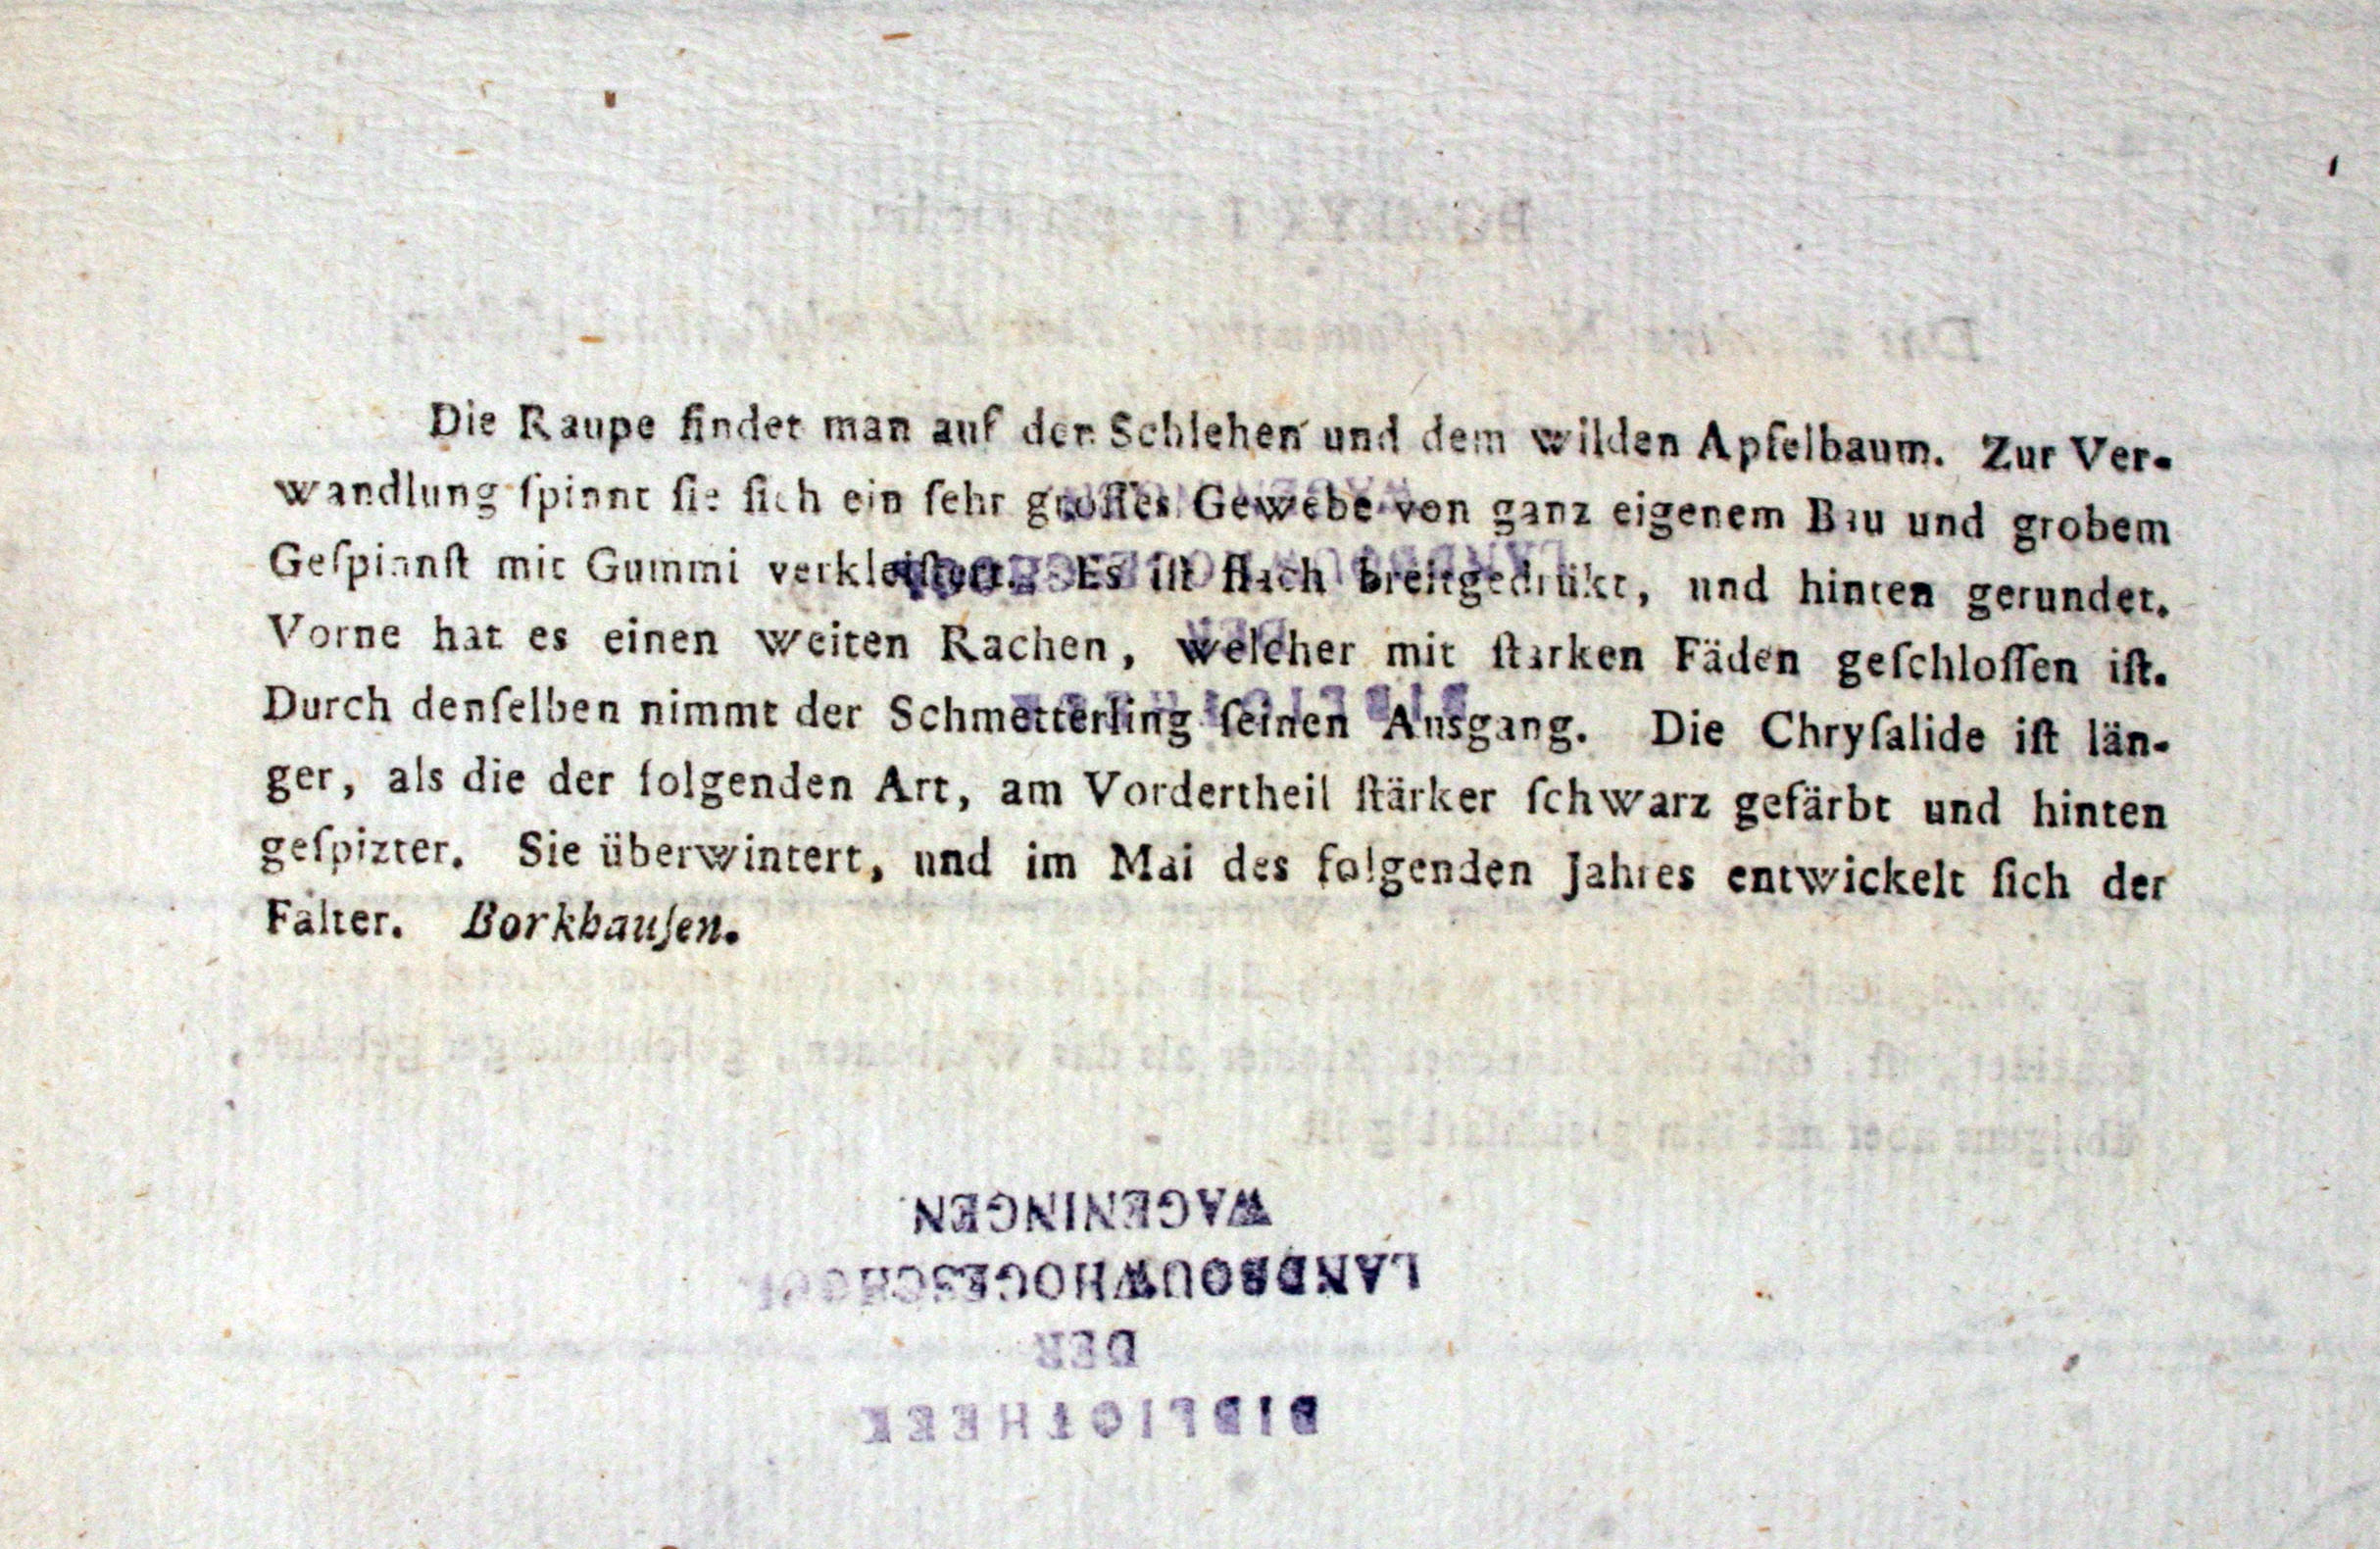 Die Raupe findet man auf den Schlehen und dem wilden Apfelbaum. Zur Ver-
wandlung ſpinnt ſie ſich ein ſehr groſſes Gewebe von ganz eigenem Bau und grobem
Geſpinnſt mit Gummi verkleiſtert. Es iſt flach breitgedrükt, und hinten gerundet.
Vorne hat es einen weiten Rachen, welcher mit ſtarken Fäden geſchloſſen iſt.
Durch denſelben nimmt der Schmetterling ſeinen Ausgang. Die Chryſalide iſt län-
ger, als die der folgenden Art, am Vordertheil ſtärker ſchwarz gefärbt und hinten
geſpizter. Sie überwintert, und im Mai des folgenden Jahres entwickelt ſich der
Falter. Borkhauſen.
BIBLIOTHEEK
DER
LANDBOUWHOGESCHOOL
WAGENINGEN